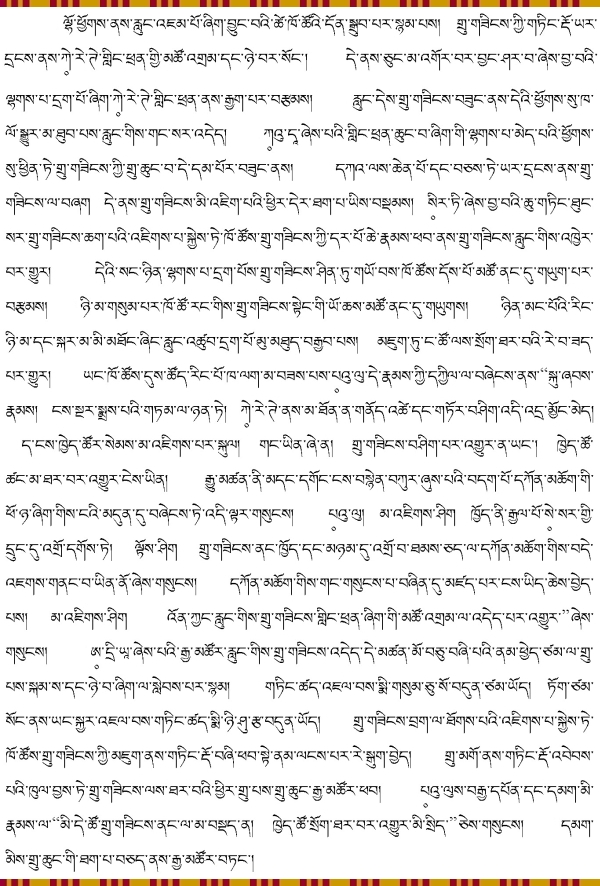 ལྷོ་ཕྱོགས་ནས་རླུང་འཇམ་པོ་ཞིག་བྱུང་བའི་ཚེ་ཁོ་ཚོའི་དོན་སྒྲུབ་པར་སྙམ་པས། གྲུ་གཟིངས་ཀྱི་གཏིང་རྡོ་ཡར་
དྲངས་ནས་ཀཱེ་རེ་ཊེ་གླིང་ཕྲན་གྱི་མཚོ་འགྲམ་དང་ཉེ་བར་སོང་། དེ་ནས་ཅུང་མ་འགོར་བར་བྱང་ཤར་བ་ཞེས་བྱ་བའི་
ལྷགས་པ་དྲག་པོ་ཞིག་ཀཱེ་རེ་ཊེ་གླིང་ཕྲན་ནས་རྒྱག་པར་བརྩམས། རླུང་དེས་གྲུ་གཟིངས་བཟུང་ནས་དེའི་ཕྱོགས་སུ་ཁ་
ལོ་སྒྱུར་མ་ཐུབ་པས་རླུང་གིས་གང་སར་འདེད། ཀཱའུ་དཱ་ཞེས་པའི་གླིང་ཕྲན་ཆུང་བ་ཞིག་གི་ལྷགས་པ་མེད་པའི་ཕྱོགས་
སུ་ཕྱིན་ཏེ་གྲུ་གཟིངས་ཀྱི་གྲུ་ཆུང་བ་དེ་དམ་པོར་བཟུང་ནས། དཀའ་ལས་ཆེན་པོ་དང་བཅས་ཏེ་ཡར་དྲངས་ནས་གྲུ་
གཟིངས་ལ་བཞག དེ་ནས་གྲུ་གཟིངས་མི་འཇིག་པའི་ཕྱིར་དེར་ཐག་པ་ཡིས་བསྡམས། སཱིར་ཏི་ཞེས་བྱ་བའི་ཆུ་གཏིང་ཐུང་
སར་གྲུ་གཟིངས་ཆག་པའི་འཇིགས་པ་སྐྱེས་ཏེ་ཁོ་ཚོས་གྲུ་གཟིངས་ཀྱི་དར་པོ་ཆེ་རྣམས་ཕབ་ནས་གྲུ་གཟིངས་རླུང་གིས་འཁྱེར་
བར་གྱུར། དེའི་སང་ཉིན་ལྷགས་པ་དྲག་པོས་གྲུ་གཟིངས་ཤིན་ཏུ་གཡོ་བས་ཁོ་ཚོས་དོས་པོ་མཚོ་ནང་དུ་གཡུག་པར་
བརྩམས། ཉི་མ་གསུམ་པར་ཁོ་ཚོ་རང་གིས་གྲུ་གཟིངས་སྟེང་གི་ཡོ་ཆས་མཚོ་ནང་དུ་གཡུགས། ཉིན་མང་པོའི་རིང་
ཉི་མ་དང་སྐར་མ་མི་མཐོང་ཞིང་རླུང་འཚུབ་དྲག་པོ་མུ་མཐུད་བརྒྱབ་པས། མཇུག་ཏུ་ང་ཚོ་ལས་སྲོག་ཐར་བའི་རེ་བ་ཟད་
པར་གྱུར། ཡང་ཁོ་ཚོས་དུས་ཚོད་རིང་པོ་ཁ་ལག་མ་བཟས་པས་པཱའུ་ལུ་དེ་རྣམས་ཀྱི་དཀྱིལ་ལ་བཞེངས་ནས་“སྐུ་ཞབས་
རྣམས། ངས་སྔར་སྨྲས་པའི་གཏམ་ལ་ཉན་ཏེ། ཀཱེ་རེ་ཊེ་ནས་མ་ཐོན་ན་གནོད་འཚེ་དང་གཏོར་བཤིག་འདི་འདྲ་མྱོང་མེད།
ད་ངས་ཁྱེད་ཚོར་སེམས་མ་འཇིགས་པར་སྐུལ། གང་ཡིན་ཞེ་ན། གྲུ་གཟིངས་བཤིག་པར་འགྱུར་ན་ཡང་། ཁྱེད་ཚོ་
ཚང་མ་ཐར་བར་འགྱུར་ངེས་ཡིན། རྒྱུ་མཚན་ནི་མདང་དགོང་ངས་བསྙེན་བཀུར་ཞུས་པའི་བདག་པོ་དཀོན་མཆོག་གི་
ཕོ་ཉ་ཞིག་གིས་ངའི་མདུན་དུ་བཞེངས་ཏེ་འདི་ལྟར་གསུངས། པཱའུ་ལུ། མ་འཇིགས་ཤིག ཁྱོད་ནི་རྒྱལ་པོ་སཱེ་སར་གྱི་
དྲུང་དུ་འགྲོ་དགོས་ཏེ། ལྟོས་ཤིག གྲུ་གཟིངས་ནང་ཁྱོད་དང་མཉམ་དུ་འགྲོ་བ་ཐམས་ཅད་ལ་དཀོན་མཆོག་གིས་བདེ་
འཇགས་གནང་བ་ཡིན་ནོ་ཞེས་གསུངས། དཀོན་མཆོག་གིས་གང་གསུངས་པ་བཞིན་དུ་མཛད་པར་ངས་ཡིད་ཆེས་བྱེད་
པས། མ་འཇིགས་ཤིག འོན་ཀྱང་རླུང་གིས་གྲུ་གཟིངས་གླིང་ཕྲན་ཞིག་གི་མཚོ་འགྲམ་ལ་འདེད་པར་འགྱུར་”ཞེས་
གསུངས། ཨཱ་དྲི་ཡཱ་ཞེས་པའི་རྒྱ་མཚོར་རླུང་གིས་གྲུ་གཟིངས་འདེད་དེ་མཚན་མོ་བཅུ་བཞི་པའི་ནམ་ཕྱེད་ཙམ་ལ་གྲུ་
པས་སྐམ་ས་དང་ཉེ་བ་ཞིག་ལ་སླེབས་པར་སྙམ། གཏིང་ཚད་འཇལ་བས་སྨི་གསུམ་ཅུ་སོ་བདུན་ཙམ་ཡོད། ཏོག་ཙམ་
སོང་ནས་ཡང་སྐྱར་འཇལ་བས་གཏིང་ཚད་སྨི་ཉི་ཤུ་རྩ་བདུན་ཡོད། གྲུ་གཟིངས་བྲག་ལ་ཐོགས་པའི་འཇིགས་པ་སྐྱེས་ཏེ་
ཁོ་ཚོས་གྲུ་གཟིངས་ཀྱི་མཇུག་ནས་གཏིང་རྡོ་བཞི་ཕབ་སྟེ་ནམ་ལངས་པར་རེ་སྒུག་བྱེད། གྲུ་མགོ་ནས་གཏིང་རྡོ་འབེབས་
པའི་ཁུལ་བྱས་ཏེ་གྲུ་གཟིངས་ལས་ཐར་བའི་ཕྱིར་གྲུ་པས་གྲུ་ཆུང་རྒྱ་མཚོར་ཕབ། པཱའུ་ལུས་བརྒྱ་དཔོན་དང་དམག་མི་
རྣམས་ལ་“མི་དེ་ཚོ་གྲུ་གཟིངས་ནང་ལ་མ་བསྡད་ན། ཁྱེད་ཚོ་སྲོག་ཐར་བར་འགྱུར་མི་སྲིད་”ཅེས་གསུངས། དམག་
མིས་གྲུ་ཆུང་གི་ཐག་པ་བཅད་ནས་རྒྱ་མཚོར་བཏང་།